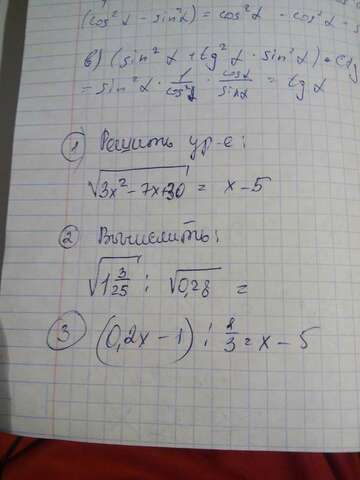 (cos²α - sin²α) = cos²α · cos²α -
в) (sin²α + tg²α · sin²α) · ctg
= sin²α · 1/cos²α · cosα/sinα = tg α
① Решить ур-е:
√(3x² - 7x + 30) = x - 5
② Вычислить:
√(1 3/25) : √0,28 =
③ (0,2x - 1) : 2/3 = x - 5